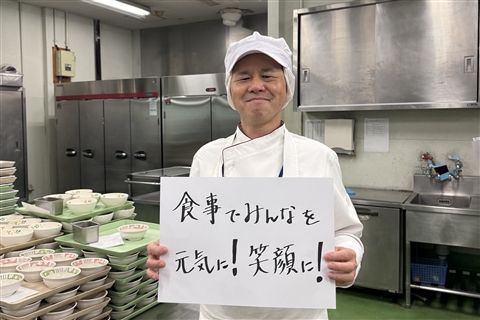 食事でみんなを
元気に!笑顔に!